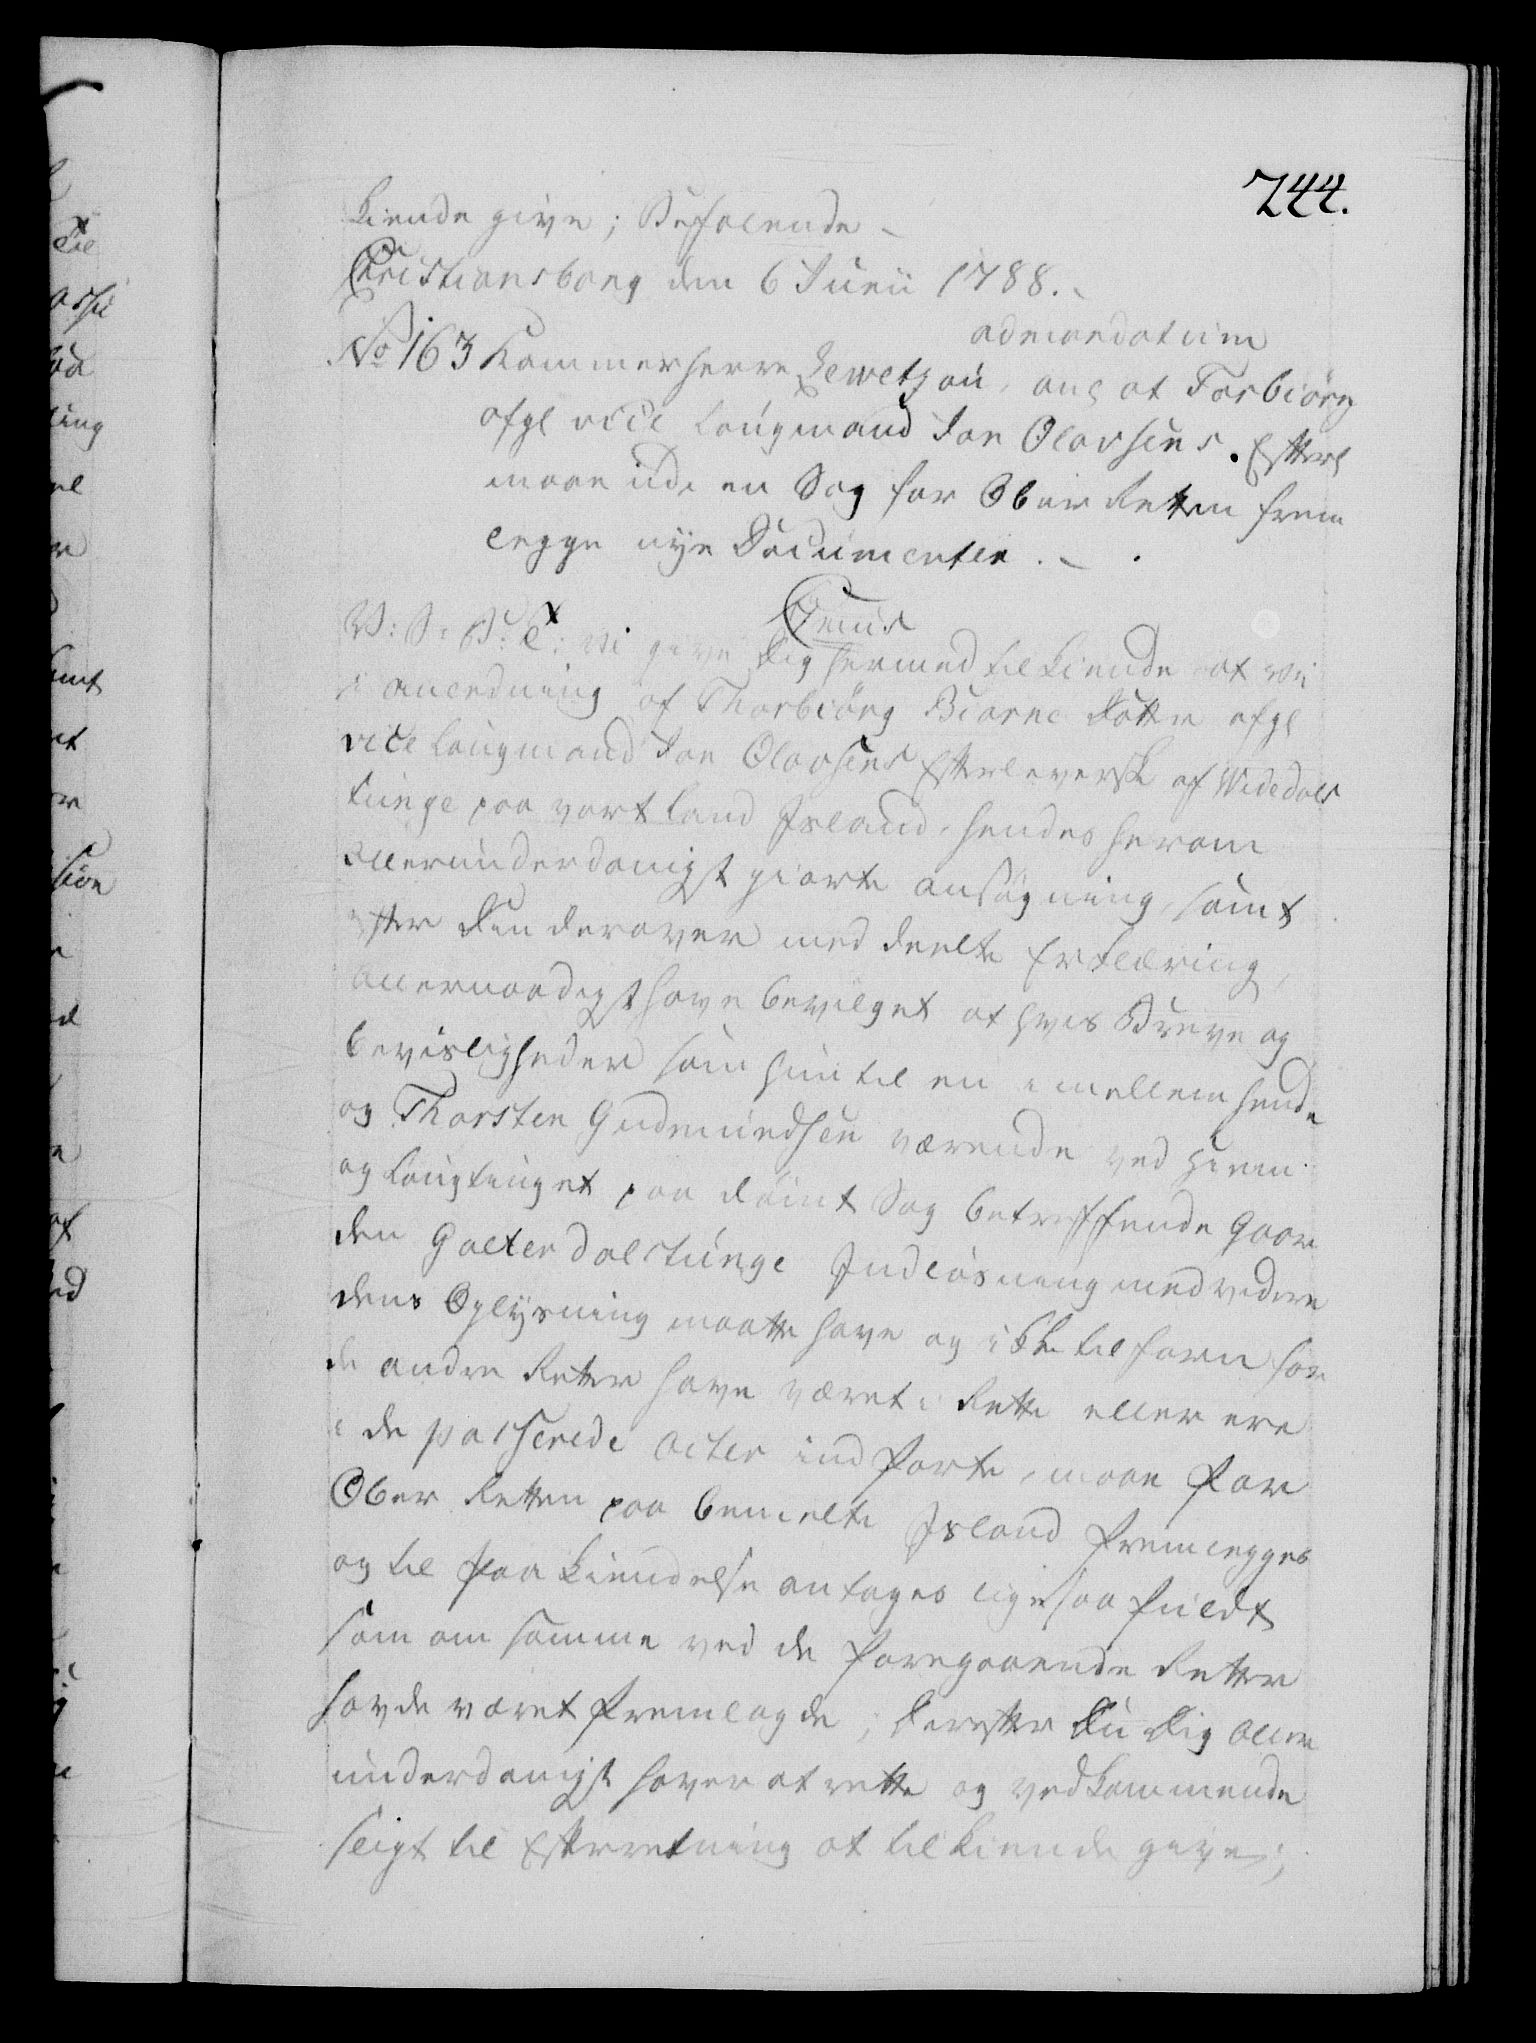 744.
kiende give; Befalende
Christiansborg den 6 Junii 1788.
ad mandatum
No 163 Kammerherre Lewetzau, ang at Torbiörg
afgl vice Laugmand Jon Olavsens Efterl
maae udi en Sag for Ober Retten frem
legge nye Documenter.
Genis
V: S: G: T: vi give dig hermed tilkiende at vi
i anledning af Thorbiörg Biarne Datter afgl
vice Laugmand Jon Olavsens Efterleverske af Widedals
tunge paa vort Land Island, hendes herom
allerunderdanigst giorte ansøgning, samt
efter din derover meddeelte Erklæring,
allernaadigst have bevilget at hvis Breve og
bevisligheder som hun til en imellem hende
og Thorsten Gudmundsen værende ved Hiem
og Laugtinget paadömt Sag betreffende Gaar
den Galterdalstunge Indløsning med videre
dens Oplysning maatte have og ikke tilforn for
de andre Retter have været i Rette eller ere
i de passerede acter indførte, maae for
Ober Retten paa bemelte Island fremlegges
og til Paakiendelse antages ligesaa fuldt
som om samme ved de foregaaende Retter
havde været fremlagde; Derefter Du Dig aller
underdanigst haver at rette og vedkommende
sligt til Efterretning at tilkiende give;